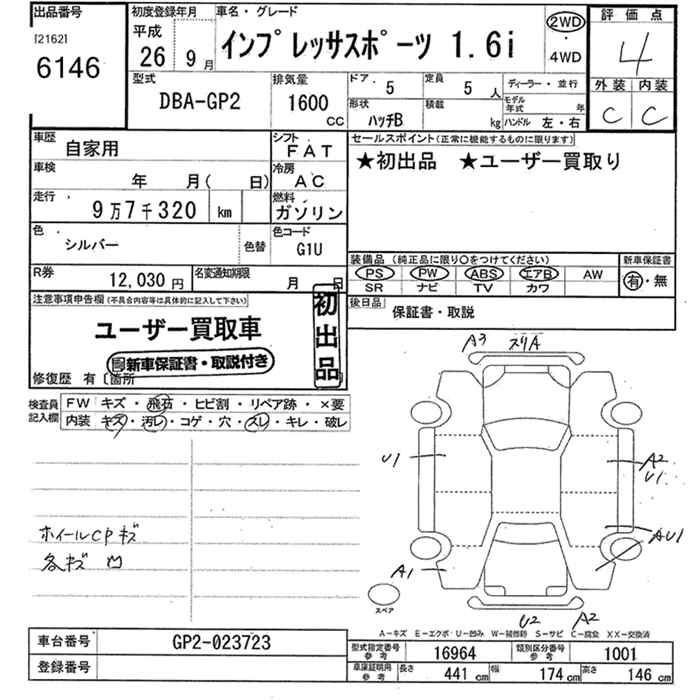 出品番号
[2162]
6146
初度登録年月
平成
26年 9月
車名・グレード
インプレッサスポーツ 1.6i
2WD
・
4WD
評価点
4
外装 内装
C C
型式
DBA-GP2
排気量
1600
cc
ドア
5
定員
5人
ディーラー・並行
形状
ハッチB
積載
kg
モデル年式 年
ハンドル 左・右
車歴
自家用
シフト
FAT
車検
年 月( 日)
冷房
AC
走行
9万7千320 km
燃料
ガソリン
色
シルバー
色替
色コード
G1U
R券
12,030円
名変通知期限
月 日
セールスポイント(正常に機能するものに限ります)
★初出品 ★ユーザー買取り
装備品 (純正品に限り○をつけてください)
PS PW ABS エアB AW
SR ナビ TV カワ
新車保証書
有・無
後日品
保証書・取説
注意事項申告欄(不具合内容等は具体的に記入して下さい)
ユーザー買取車
新車保証書・取説付き
初出品
修復歴 有〔箇所
検査員
記入欄
FW キズ・飛石・ヒビ割・リペア跡・×要
内装 キズ・汚レ・コゲ・穴・スレ・キレ・破レ
ホイールCPキズ
各キズ凹
A3 スリA
U1
A2
U1
AU1
A1
スペア
U2 A2
A-キズ E-エクボ U-凹み W-補修跡 S-サビ C-腐食 XX-交換済
車台番号
GP2-023723
登録番号
型式指定番号
参考
16964
類別区分番号
参考
1001
車庫証明用
参考
長さ
441 cm
幅
174 cm
高さ
146 cm